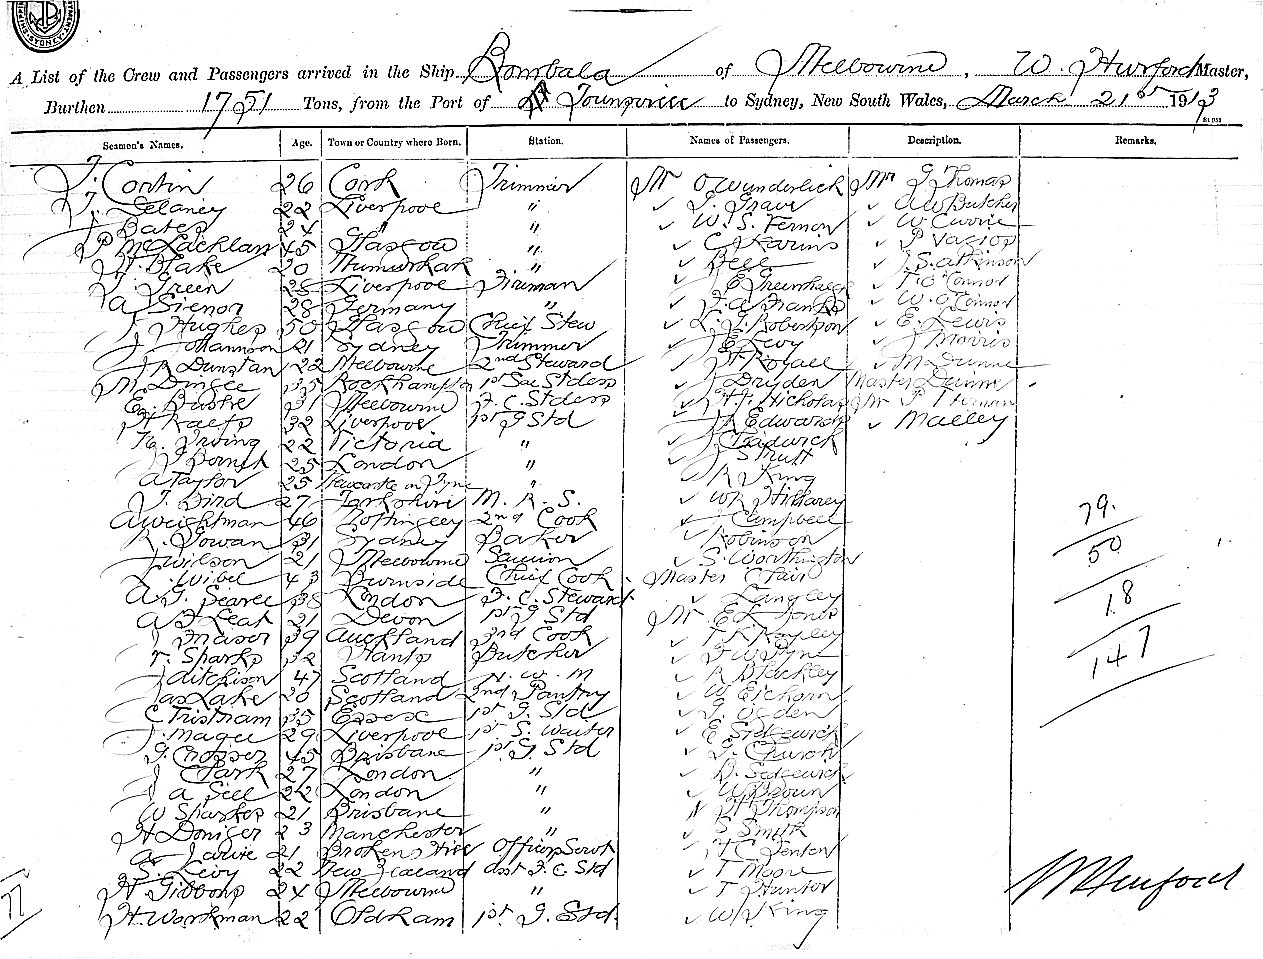 A List of the Crew and Passengers arrived in the Ship Bombala of Melbourne, W. Hurford Master,
Burthen 1751 Tons, from the Port of Townsville to Sydney, New South Wales, March 21st 1913
Seamen's Names. Age. Town or Country where Born. Station. Names of Passengers. Description. Remarks.
26 Cork Trimmer Mr O Wunderlich Mr J Thomas
J. Delaney 22 Liverpool " ✓ J. Grave ✓ A W Butcher
J Bates 24 " " ✓ W. S. Fernon ✓ W Currie
McLachlan 45 Glasgow " ✓ C Karins ✓ P
H. Blake 20 " ✓ Bell ✓ J S. Atkinson
J. Green 28 Liverpool Fireman ✓ E Greenhalgh ✓ O'Connor
A Sienor 28 Germany " ✓ ✓ W. O'Connor
J Hughes 50 Glasgow Chief Stew ✓ L. J. Robertson ✓ E. Lewis
J Johannson 21 Sydney Trimmer ✓ J E Levy ✓ J Morris
J R Dunstan 22 Melbourne 2nd Steward ✓ Royall ✓ M Dunne
M. Dingee 35 Rockhampton 1st Sal Stdess ✓ J Dryden Master Dunne
E. Burke 31 Melbourne F. C. Stdess ✓ H. F. Nicholas Mr
32 Liverpool 1st G Std ✓ Edwards ✓ Malley
N. Irving 22 Victoria " ✓ J Chadwick
25 London " ✓ J Strutt
A Taylor 25 Newcastle on Tyne " ✓ R King
J. Bird 27 Yorkshire M. R. S. ✓ W R Hillarey
A Weightman 46 2nd Cook ✓ J Campbell 79.
R. Gowan 31 Sydney Baker ✓ Robinson 50
J Wilson 21 Melbourne ✓ S. Worthington
L. Wibel 43 Burnside Chief Cook Master Clair
A. J. Pearce 38 London F. C. Steward ✓ Langley 18
A D Leak 31 Devon 1st G Std Mr E L Jones
J Fraser 39 Auckland 3rd Cook ✓ 147
Sharks 32 Hants Butcher ✓ F W Pyne
J Aitchison 47 Scotland N. W. M ✓ R Blackley
Jas Lake 20 Scotland 2nd Pantry ✓ W Eichorn
C Tristram 35 Essex 1st G. Std ✓ J. Ogden
J. Magee 29 Liverpool 1st S. Waiter ✓ E Sidgwick
G. 45 Brisbane 1st G Std ✓ J. Church
J Clark 27 London " ✓ D. Sedgwick
J A Sell 22 London " ✓ W Brown
W Sharkes 21 Brisbane " ✓ H Thompson
H Doniger 23 Manchester " ✓ S Smyth
21 Broken Hill Officers Servt ✓ H C Fenton
S. Levy 22 New Zealand asst F. C Std ✓ T Moore
H Gibbons 24 Melbourne " ✓ T Hunter
77 H. Workman 22 Oldham 1st G. Std. ✓ W J King
W Hurford